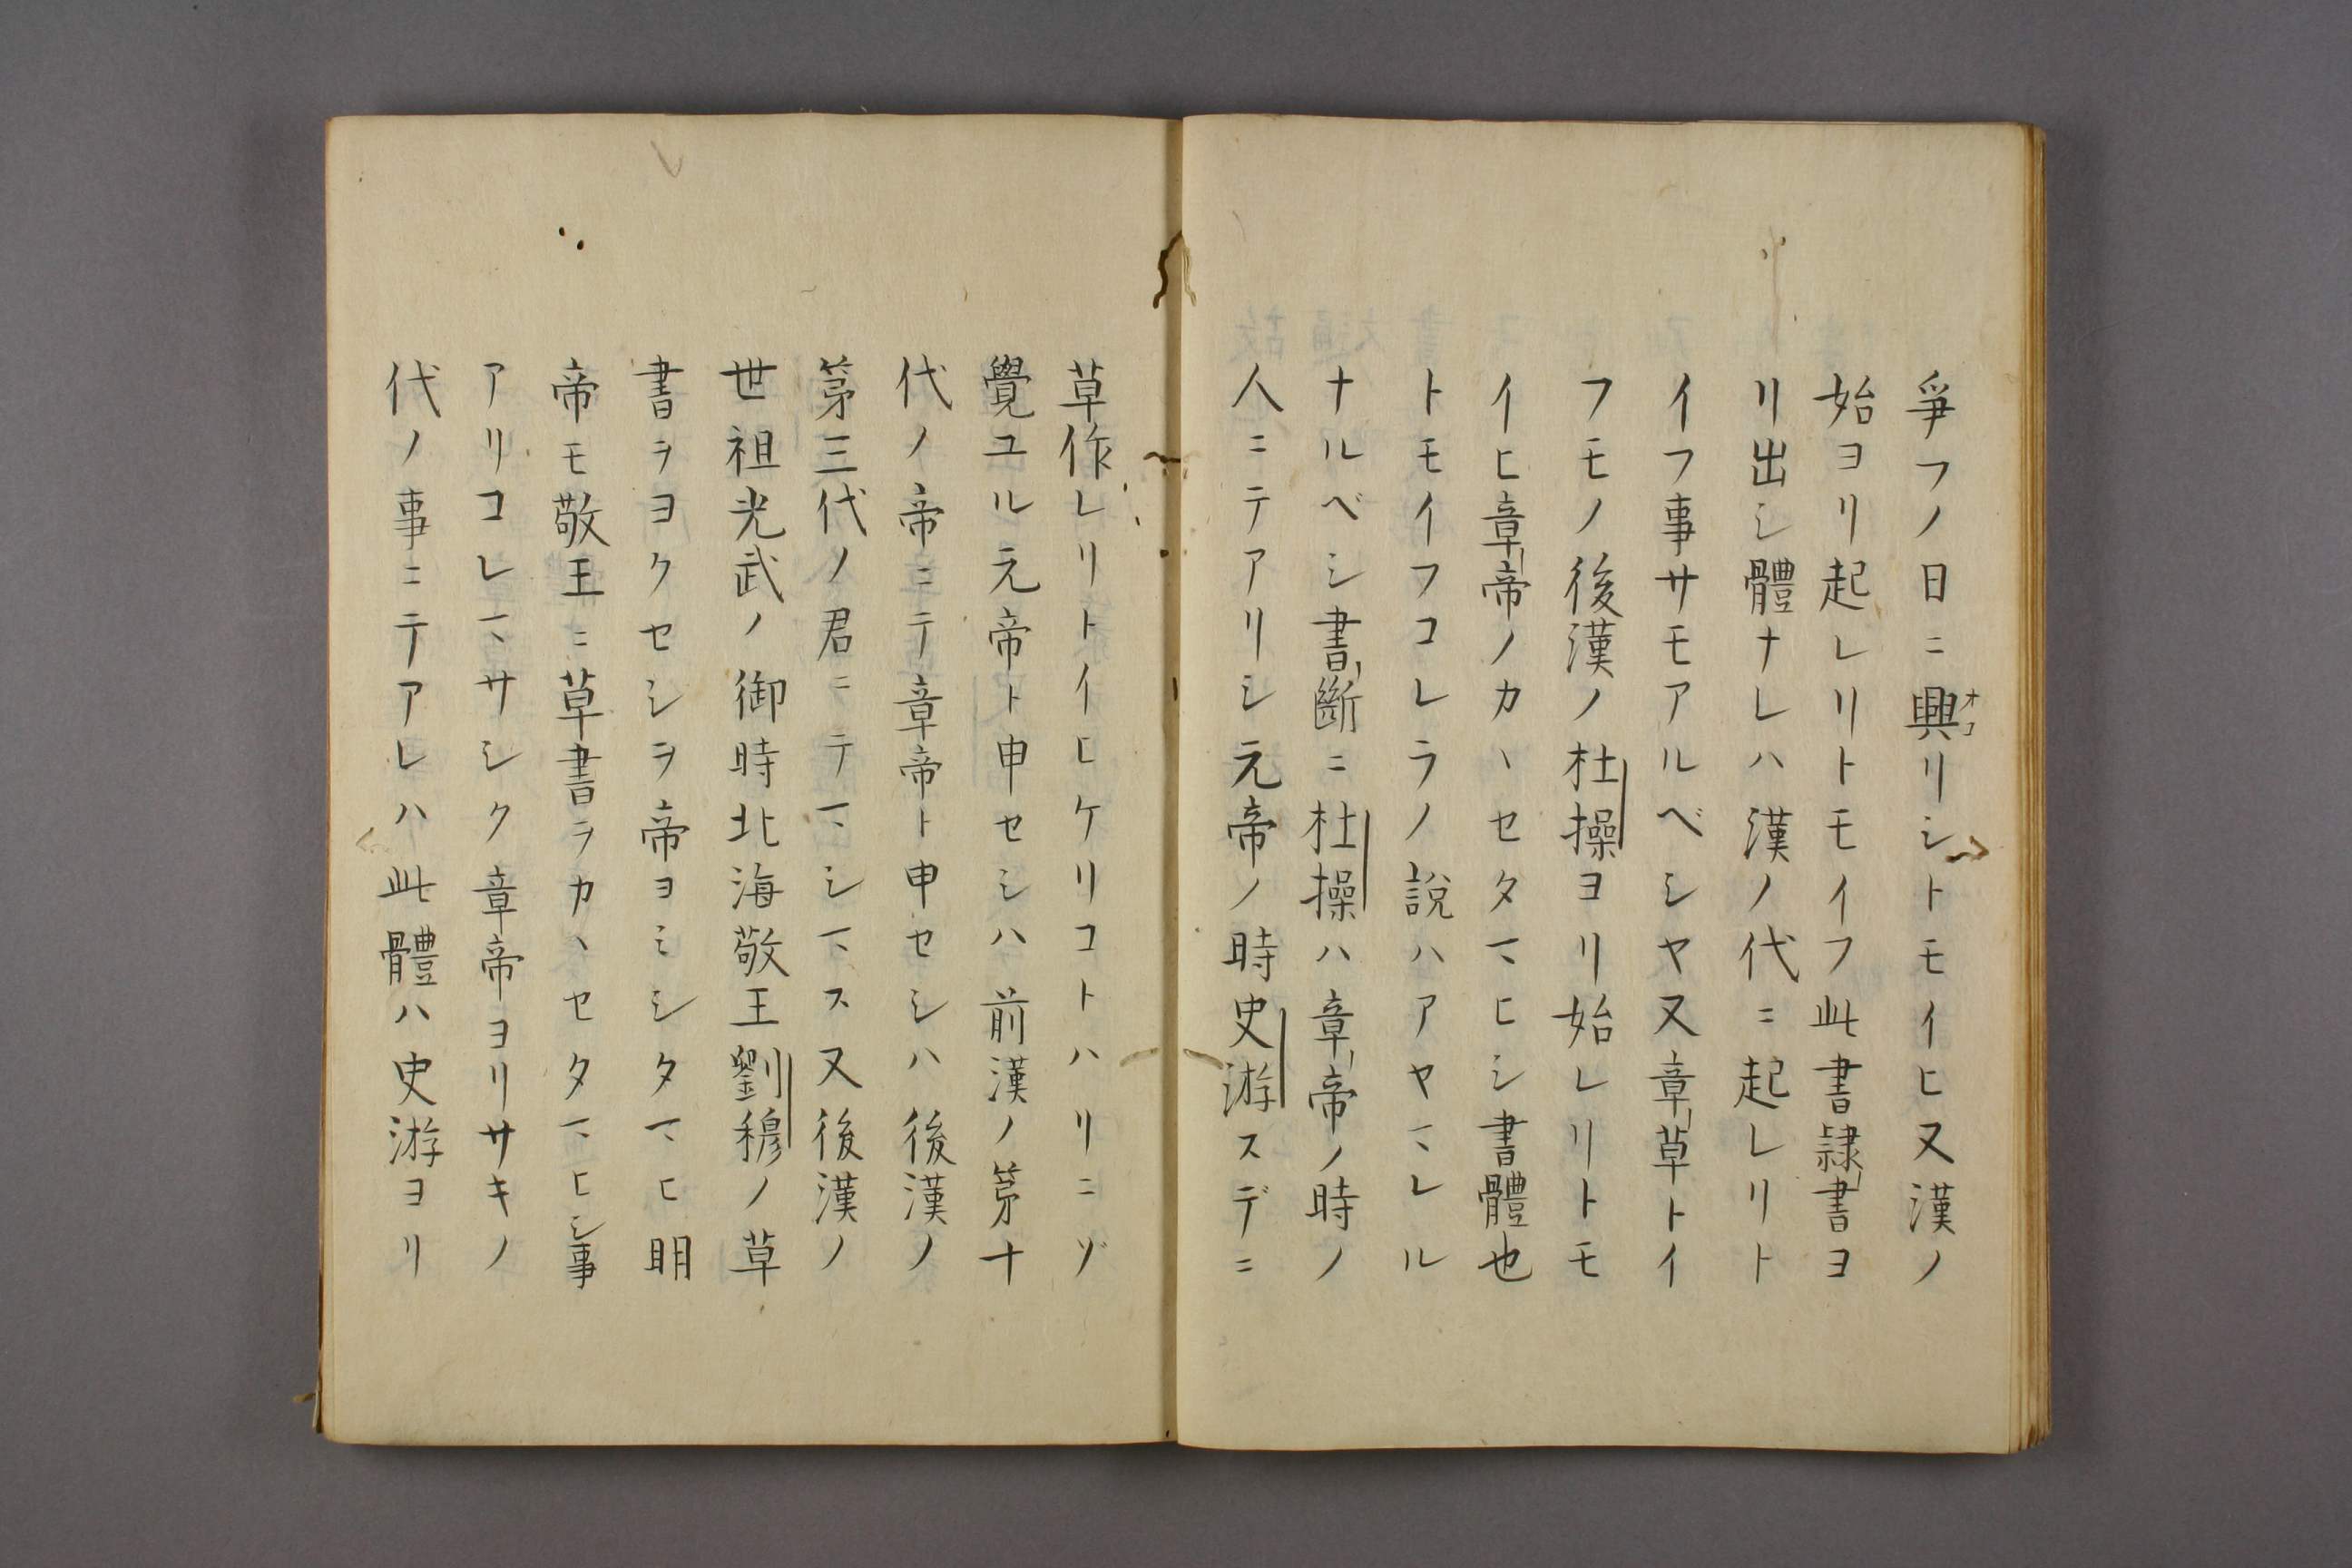 爭フノ日ニ興リシトモイヒ又漢ノ
オコ
始ヨリ起レリトモイフ此書隷書ヨ
リ出シ體ナレハ漢ノ代ニ起レリト
イフ事サモアルベシヤ又章草トイ
フモノ後漢ノ杜操ヨリ始レリトモ
イヒ章帝ノカヽセタマヒシ書體也
トモイフコレラノ說ハアヤマレル
ナルベシ書斷ニ杜操ハ章帝ノ時ノ
人ニテアリシ元帝ノ時史游スデニ
草作レリトイヒケリコトハリニゾ
覺ユル元帝ト申セシハ前漢ノ第十
代ノ帝ニテ章帝ト申セシハ後漢ノ
第三代ノ君ニテマシマス又後漢ノ
世祖光武ノ御時北海敬王劉穆ノ草
書ヲヨクセシヲ帝ヨミシタマヒ明
帝モ敬王ニ草書ヲカヽセタマヒシ事
アリコレマサシク章帝ヨリサキノ
代ノ事ニテアレハ此體ハ史游ヨリ